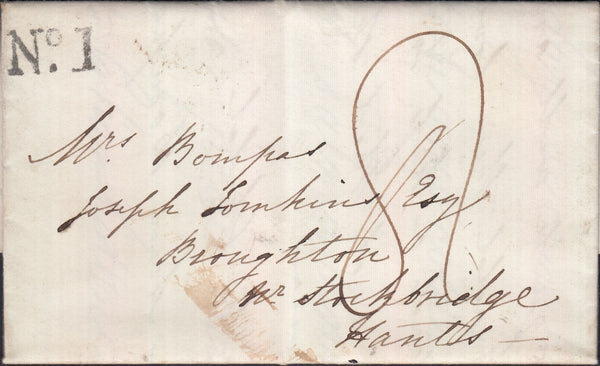 No. 1
8
Mrs Bompas
Joseph Tomkins Esq
Broughton
Nr Stockbridge
Hants